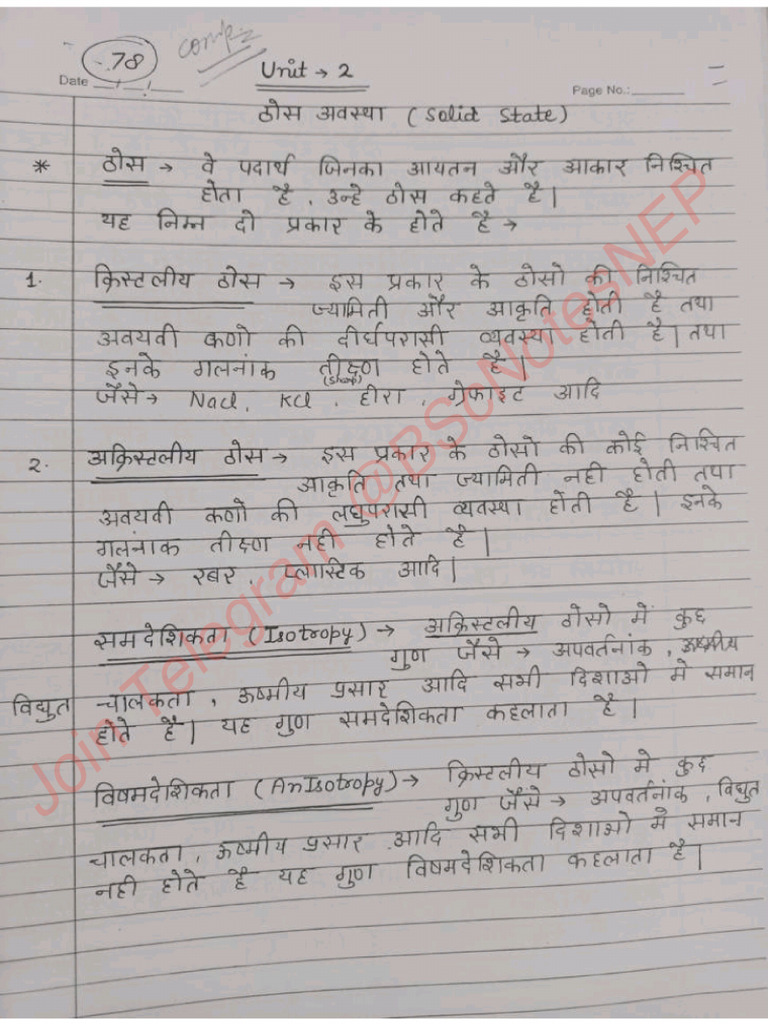 78
comp.
Unit → 2
Date
Page No.:
ठोस अवस्था ( Solid State )
* ठोस → वे पदार्थ जिनका आयतन और आकार निश्चित
होता है, उन्हे ठोस कहते है।
यह निम्न दो प्रकार के होते है →
1. क्रिस्टलीय ठोस → इस प्रकार के ठोसो की निश्चित
ज्यामिती और आकृति होती है तथा
अवयवी कणो की दीर्घपरासी व्यवस्था होती है। तथा
इनके गलनांक तीक्ष्ण होते है।
(Sharp)
जैसे→ Nacl, Kcl, हीरा, ग्रेफाइट आदि
2. अक्रिस्टलीय ठोस → इस प्रकार के ठोसो की कोई निश्चित
आकृति तथा ज्यामिती नही होती तथा
अवयवी कणो की लघुपरासी व्यवस्था होती है। इनके
गलनांक तीक्ष्ण नही होते है।
जैसे → रबर, प्लास्टिक आदि।
समदेशिकता (Isotropy) → अक्रिस्टलीय ठोसो मे कुछ
गुण जैसे → अपवर्तनांक, ऊष्मीय
विद्युत चालकता, ऊष्मीय प्रसार आदि सभी दिशाओ मे समान
होते है। यह गुण समदेशिकता कहलाता है।
विषमदेशिकता (AnIsotropy) → क्रिस्टलीय ठोसो मे कुछ
गुण जैसे → अपवर्तनांक, विद्युत
चालकता, ऊष्मीय प्रसार आदि सभी दिशाओ मे समान
नही होते है यह गुण विषमदेशिकता कहलाता है।
Join Telegram @BScNotesNEP